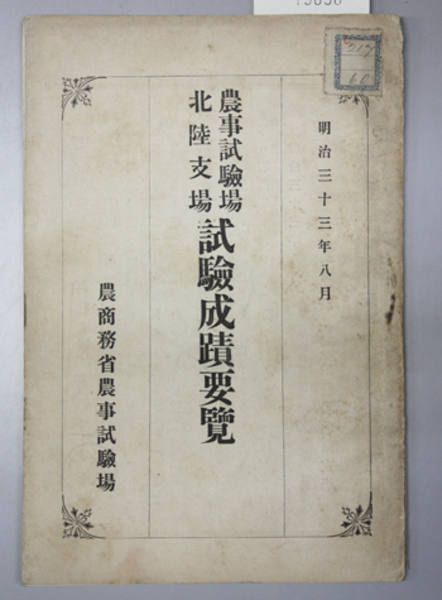 明治三十三年八月
農事試驗場
北陸支場
試驗成蹟要覽
農商務省農事試驗場
217
60